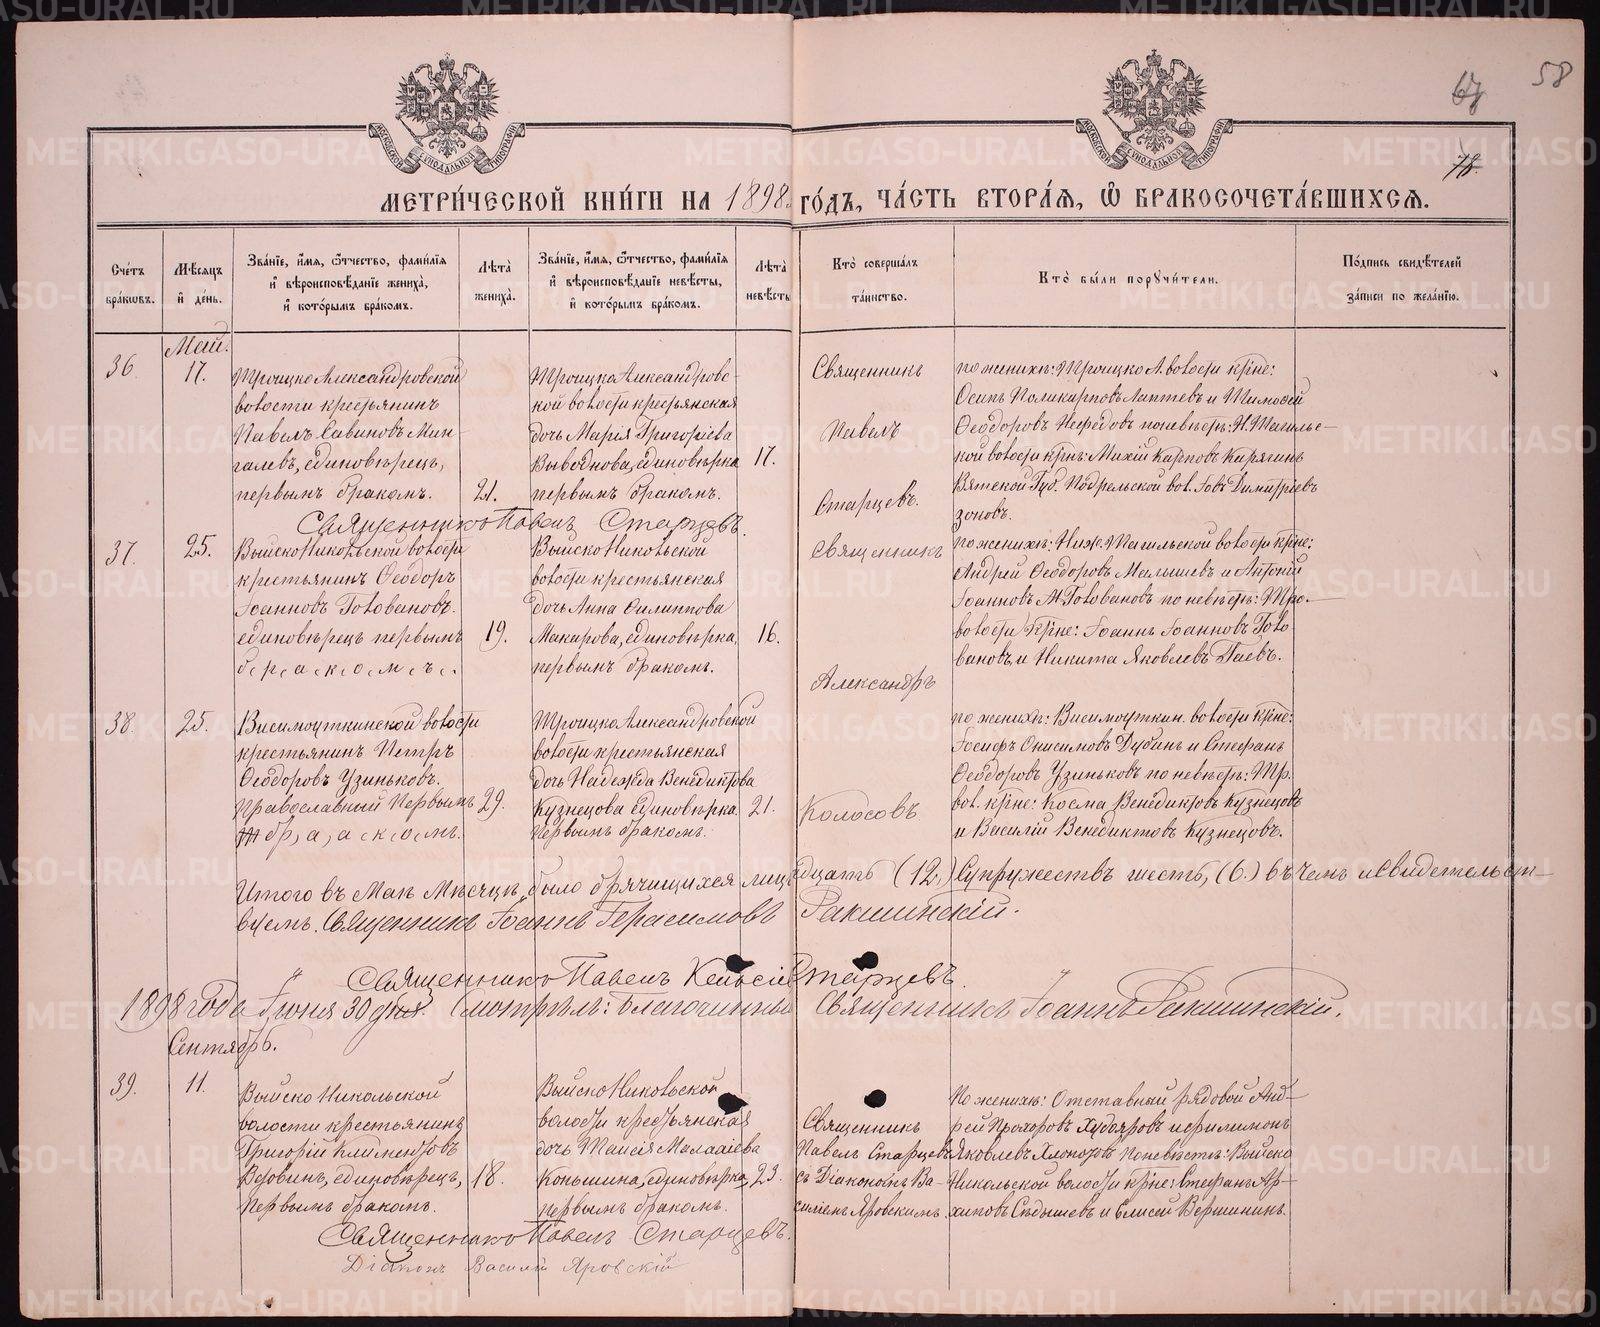 58
67
78.
МЕТРИ́ЧЕСКОЙ КНИ́ГИ НА 1898 ГО́ДЪ, ЧА́СТЬ ВТОРА́Я, Ѿ БРАКОСОЧЕТА́ВШИХСЯ.
Сче́тъ бра́кѡвъ.
Мѣ́сяцъ и҆ де́нь.
Зва́нїе, и҆́мя, ѻ҆́тчество, фами́лїя и҆ вѣроисповѣ́данїе жениха̀, и҆ кото́рымъ бра́комъ.
Лѣ́та жениха̀.
Зва́нїе, и҆́мя, ѻ҆́тчество, фами́лїя и҆ вѣроисповѣ́данїе невѣ́сты, и҆ кото́рымъ бра́комъ.
Лѣ́та невѣ́сты
Кто̀ соверша́лъ та́инство.
Кто̀ бы́ли порꙋчи́тели.
По́дпись свидѣ́телей за́писи по жела́нїю.
Май.
36.
17.
Троицко Александровской
волости крестьянинъ
Павелъ Савиновъ Мин-
галевъ, единовѣрецъ,
первымъ бракомъ.
21.
Троицко Александровс-
кой волости крестьянская
дочь Марія Григоріева
Выводнова, единовѣрка
первымъ бракомъ.
17.
Священникъ
Павелъ
Старцевъ.
по женихѣ: Троицко А. волости крѣне:
Осипъ Поликарповъ Лаптевъ и Тимоѳей
Ѳеодоровъ Нефедовъ по невѣстѣ: Н. Тагильс-
кой волости крнъ: Михій Карповъ Карягинъ
Вятской Губ. вол. Іовъ Димитріевъ
зоновъ.
Священникъ Павелъ Старцевъ.
37.
25.
Выйско Никольской волости
крестьянинъ Ѳеодоръ
Іоанновъ Головановъ.
единовѣрецъ первымъ
бракомъ.
19.
Выйско Никольской
волости крестьянская
дочь Анна Филиппова
Макарова, единовѣрка,
первымъ бракомъ.
16.
Священникъ
Александръ
Колосовъ
по женихѣ: Ниж. Тагильской волости крѣне:
Андрей Ѳеодоровъ Малышевъ и Антоній
Іоанновъ Головановъ по невѣстѣ: Тро.
волости крѣне: Іоаннъ Іоанновъ Голо
вановъ и Никита Яковлевъ Гаевъ.
38.
25.
Висимоуткинской волости
крестьянинъ Петръ
Ѳеодоровъ Узиньковъ.
Православный Первымъ
бракомъ.
29.
Троицко Александровской
волости крестьянская
дочь Надежда Венедиктова
Кузнецова единовѣрка.
Первымъ бракомъ.
21.
по женихѣ: Висимоуткин. волости крѣне:
Іосифъ Онисимовъ Дубинъ и Стефанъ
Ѳеодоровъ Узиньковъ по невѣстѣ: Тр.
вол. крѣне: Косма Венедиктовъ Кузнецовъ
и Василій Венедиктовъ Кузнецовъ.
Итого въ Маѣ Мѣсяцѣ было брачущихся лицъ дцать (12.) Супружествъ шесть, (6.) въ чемъ и свидетельст-
вуемъ. Священникъ Іоаннъ Герасимовъ Ракшинскій.
Священникъ Павелъ Старцевъ.
1898 года Іюня 30 дня. Смотрѣлъ: Благочинный Священникъ Іоаннъ Ракшинскій.
Сентябрь.
39.
11.
Выйско Никольской
волости крестьянинъ
Григорій Климентовъ
Вдовинъ, единовѣрецъ,
Первымъ бракомъ.
18.
Выйско Никольской
волости крестьянская
дочь Таисія Малахіева
Коньшина, единовѣрка,
первымъ бракомъ.
23.
Священникъ
Павелъ Старцевъ
съ Діакономъ Ва-
силіемъ Яровскимъ.
По женихѣ: Отставный рядовой Анд-
рей Прохоровъ Худояровъ и Филимонъ
Яковлевъ Хлопотовъ По невѣстѣ: Выйско
Никольской волости крѣне: Стефанъ Ар-
хиповъ Сѣдышевъ и Елисей Вершининъ.
Священникъ Павелъ Старцевъ.
Діаконъ Василій Яровскій
METRIKI.GASO-URAL.RU